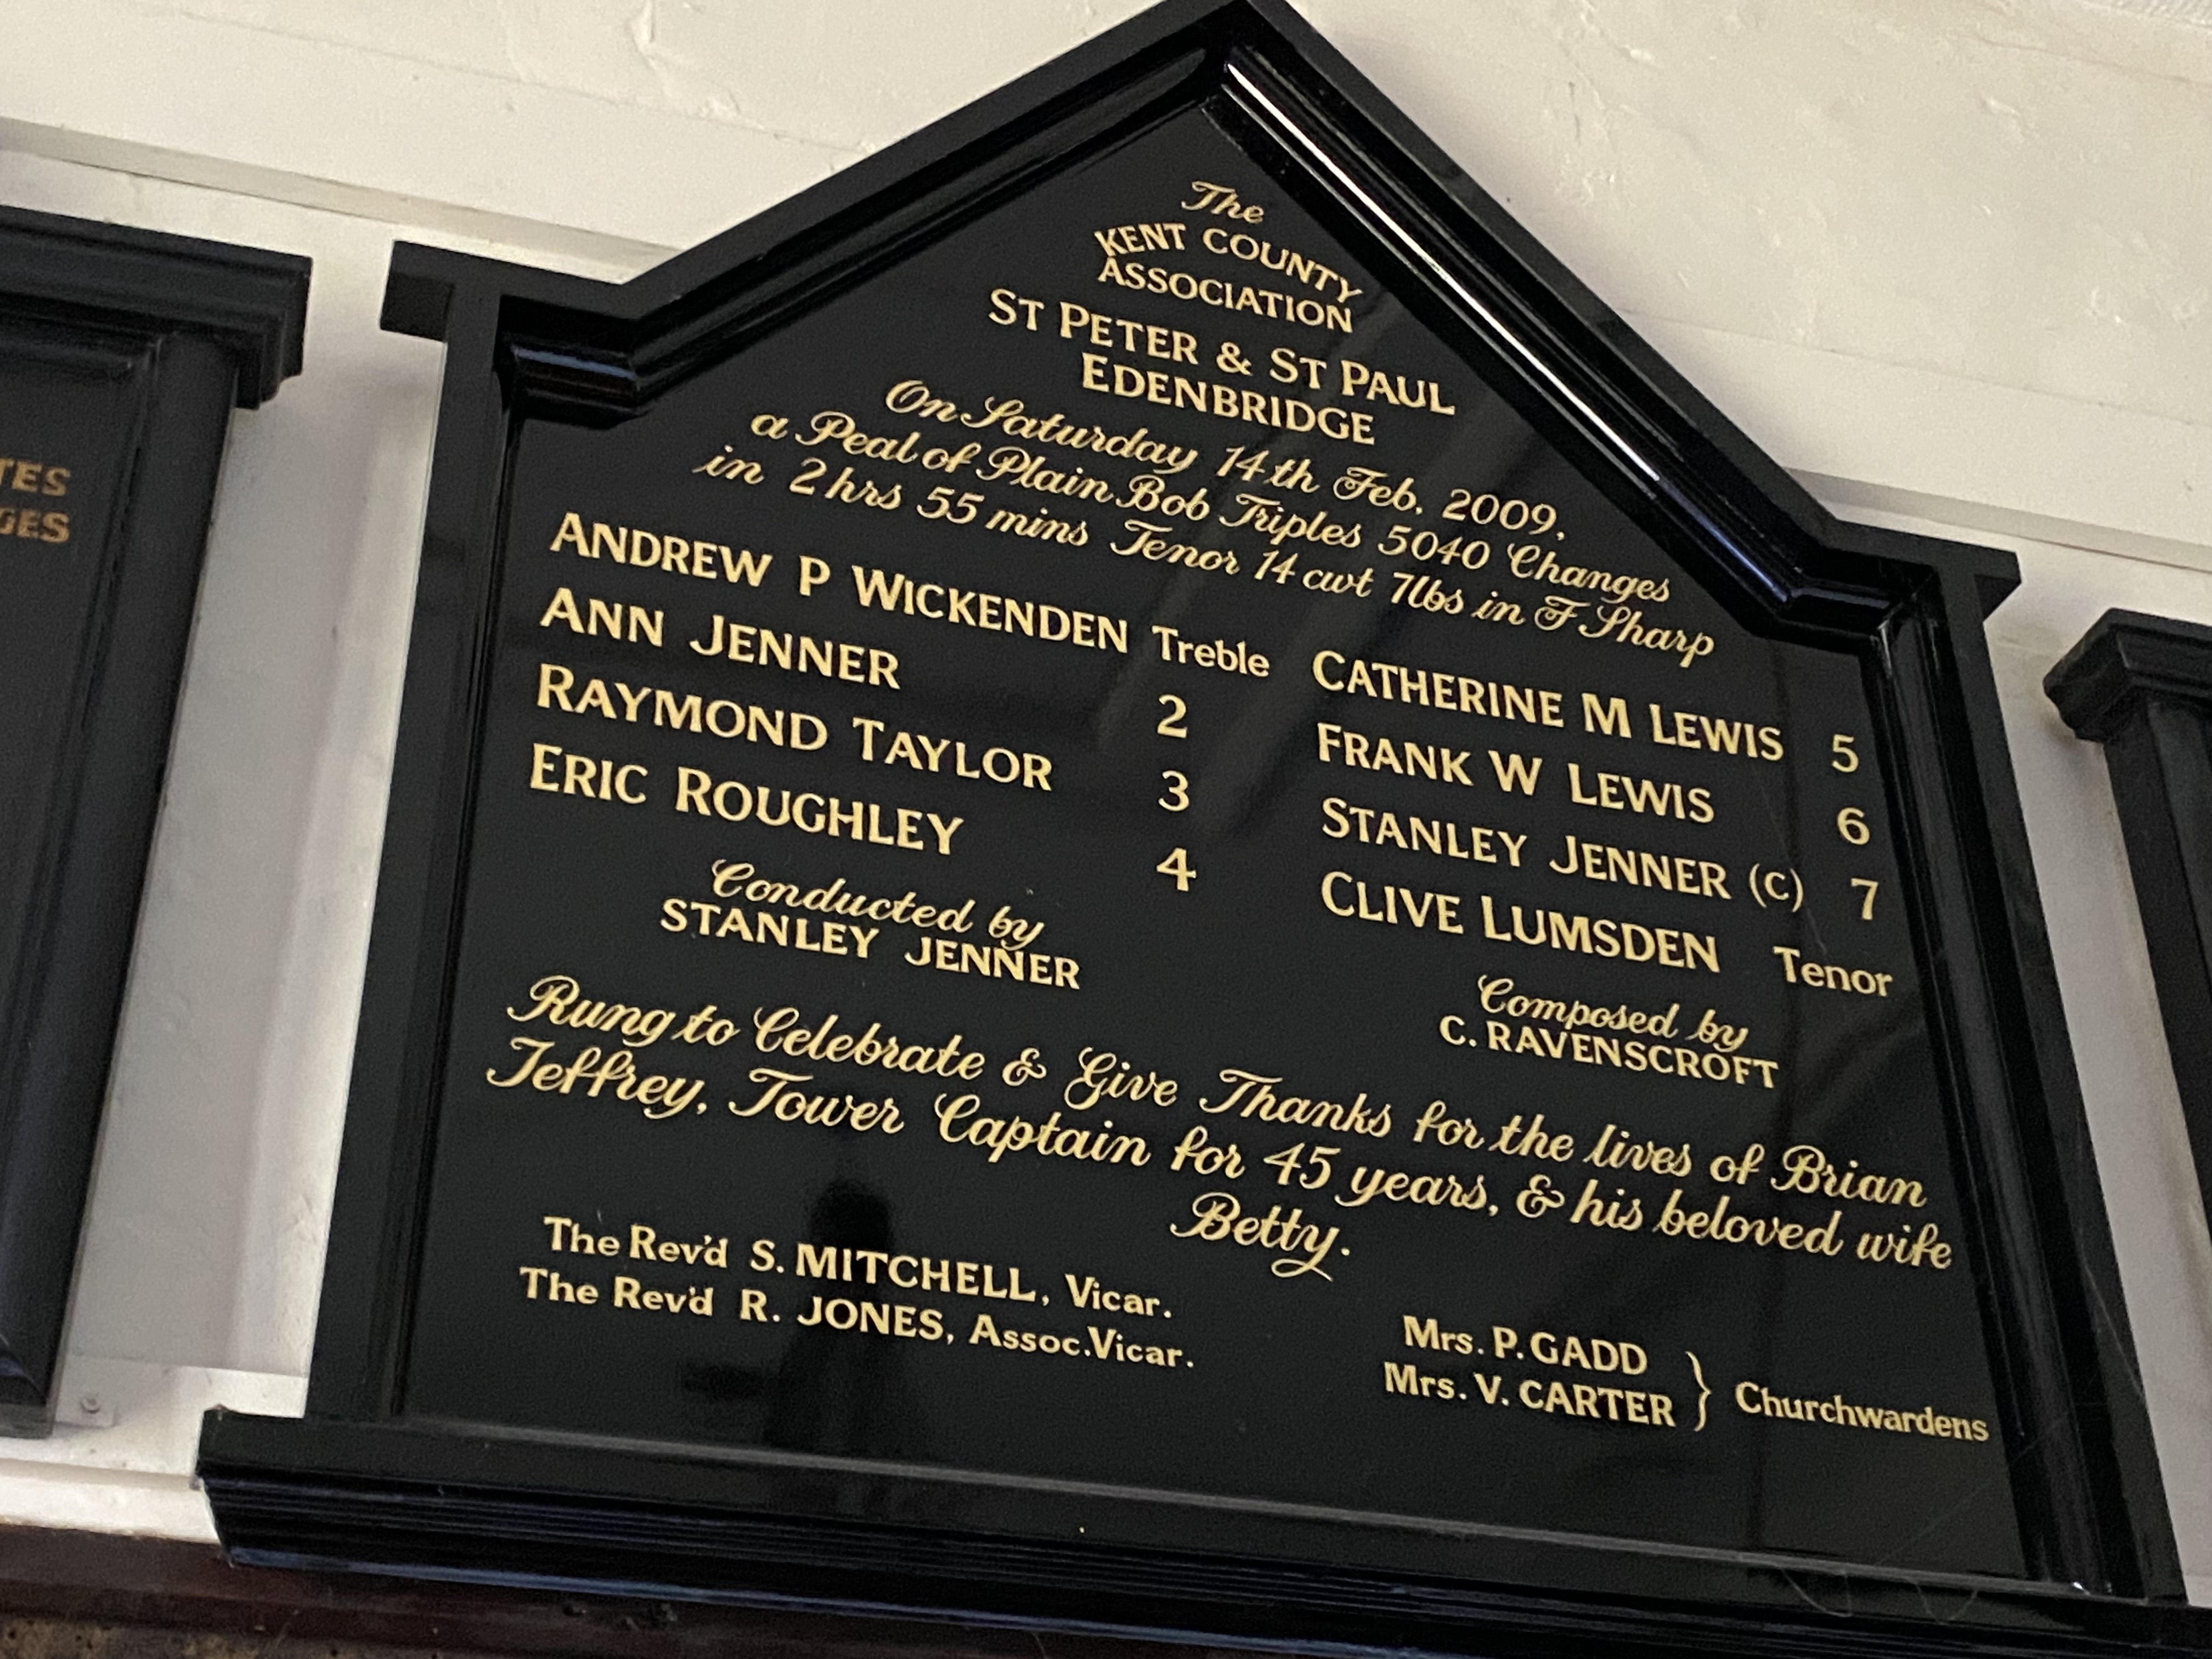 The
KENT COUNTY
ASSOCIATION
ST PETER & ST PAUL
EDENBRIDGE
On Saturday 14th Feb, 2009,
a Peal of Plain Bob Triples 5040 Changes
in 2hrs 55 mins Tenor 14 cwt 7lbs in F Sharp
ANDREW P WICKENDEN Treble
ANN JENNER 2
RAYMOND TAYLOR 3
ERIC ROUGHLEY 4
CATHERINE M LEWIS 5
FRANK W LEWIS 6
STANLEY JENNER (C) 7
CLIVE LUMSDEN Tenor
Conducted by
STANLEY JENNER
Composed by
C. RAVENSCROFT
Rung to Celebrate & Give Thanks for the lives of Brian
Jeffrey, Tower Captain for 45 years, & his beloved wife
Betty.
The Rev'd S. MITCHELL, Vicar.
The Rev'd R. JONES, Assoc.Vicar.
Mrs. P. GADD
Mrs. V. CARTER } Churchwardens